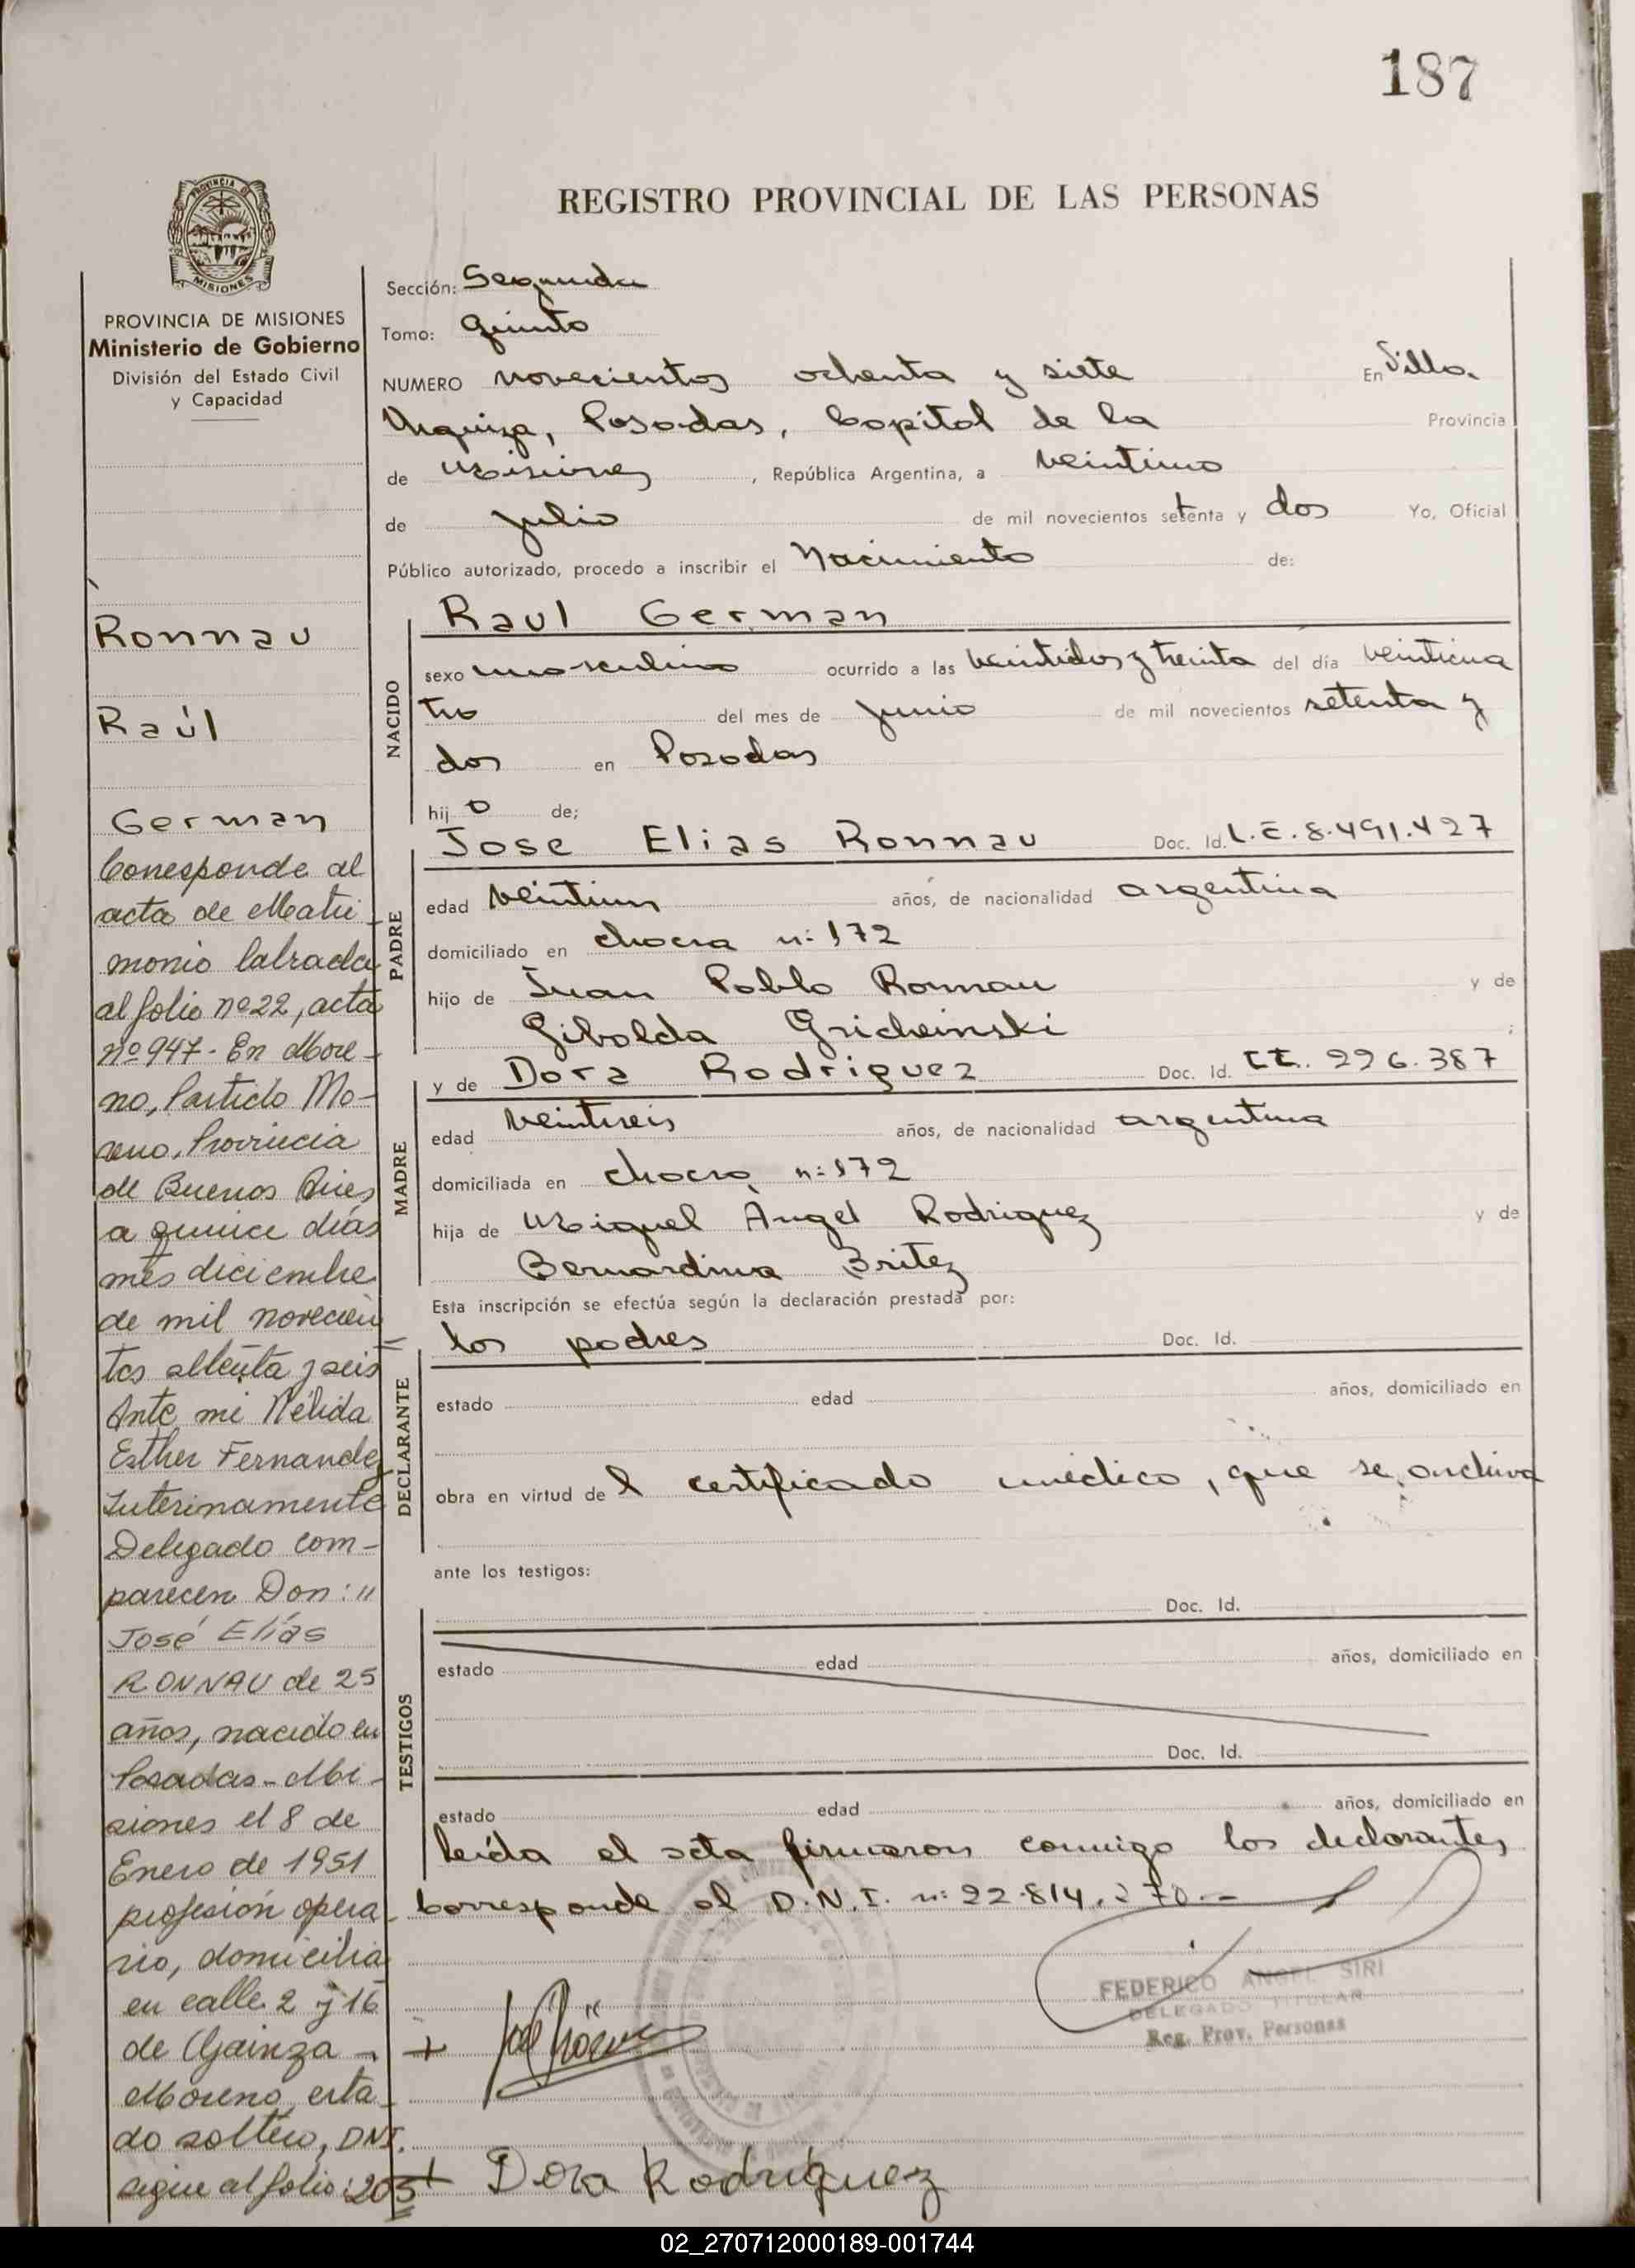 187
REGISTRO PROVINCIAL DE LAS PERSONAS
PROVINCIA DE MISIONES
MISIONES
PROVINCIA DE MISIONES
Ministerio de Gobierno
División del Estado Civil
y Capacidad
Ronnau
Raúl
German
Corresponde al
acta de Matri-
monio labrada
al folio nº 22, acta
nº 947.- En More-
no, Partido Mo-
reno, Provincia
de Buenos Aires
a quince días
mes diciembre
de mil novecien
tos setenta y seis
Ante mi Nélida
Esther Fernandez
Interinamente
Delegado com-
parecen Don: "
José Elías
RONNAU de 25
años, nacido en
Posadas - Mi-
siones el 8 de
Enero de 1951
profesión opera-
rio, domicilia
en calle 2 y 16
de Gainza -
Moreno, esta-
do soltero, DNI.
sigue al folio: 205
Sección: Segunda
Tomo: Quinto
NUMERO novecientos ochenta y siete En Villa
Urquiza, Posadas, Capital de la Provincia
de Misiones, República Argentina, a veintiuno
de julio de mil novecientos setenta y dos Yo, Oficial
Público autorizado, procedo a inscribir el Nacimiento de:
NACIDO
Raul German
sexo masculino ocurrido a las veintidos y treinta del día veinticua
tro del mes de junio de mil novecientos setenta y
dos en Posadas
hijo de;
PADRE
Jose Elias Ronnau Doc. Id. L.E. 8.491.427
edad veintiun años, de nacionalidad argentina
domiciliado en chacra n: 172
hijo de Juan Pablo Ronnau y de
Gibolda Gricheinski ;
MADRE
y de Dora Rodriguez Doc. Id. 226.387
edad veintiseis años, de nacionalidad argentina
domiciliada en chacra n: 172
hija de Miguel Angel Rodriguez y de
Bernardina Britez
Esta inscripción se efectúa según la declaración prestada por:
DECLARANTE
los padres Doc. Id.
estado edad años, domiciliado en
obra en virtud del certificado médico, que se archiva
ante los testigos:
TESTIGOS
Doc. Id.
estado edad años, domiciliado en
Doc. Id.
estado edad años, domiciliado en
leída el acta firmaron conmigo los declarantes
Corresponde al D.N.I. n: 22.814.270.-
FEDERICO ANGEL SIRI
DELEGADO TITULAR
Reg. Prov. Personas
+
+ Dora Rodríguez
02_270712000189-001744